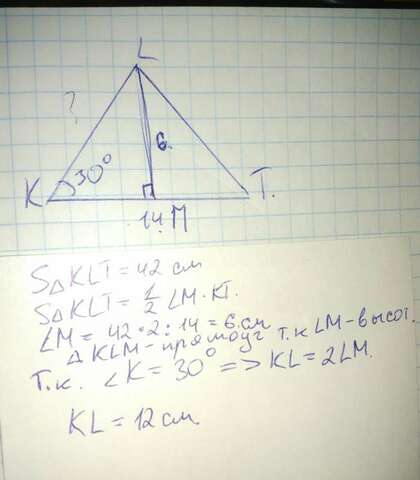 L
?
6.
K 30° T.
14. M
S△KLT = 42 см
S△KLT = 1/2 LM · KT.
LM = 42 · 2 : 14 = 6 см
△ KLM - прямоуг т.к LM - высот.
Т.к. ∠K = 30° => KL = 2LM.
KL = 12 см